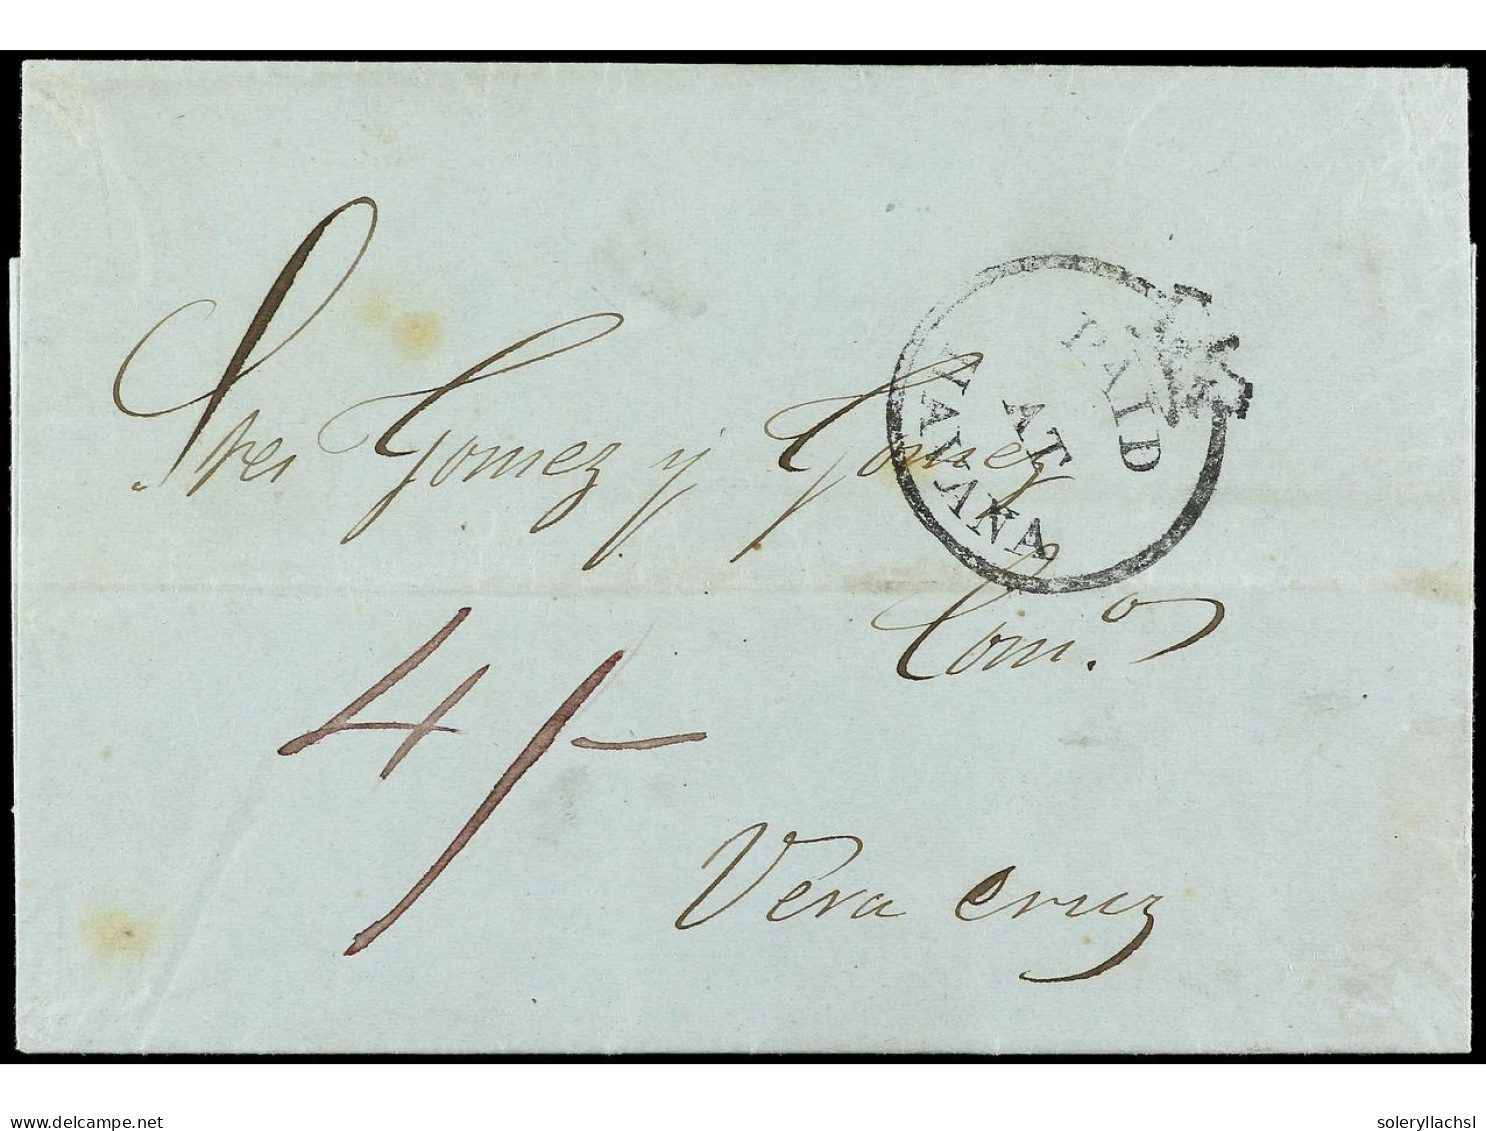 Sres Gomez y Gomez
PAID
AT
HAVANA
Com.o
4/-
Vera cruz
delcampe.net
soleryllachsl